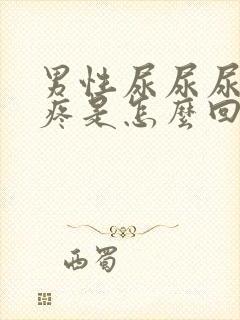 男性尿尿尿
疼是怎麼回
西蜀